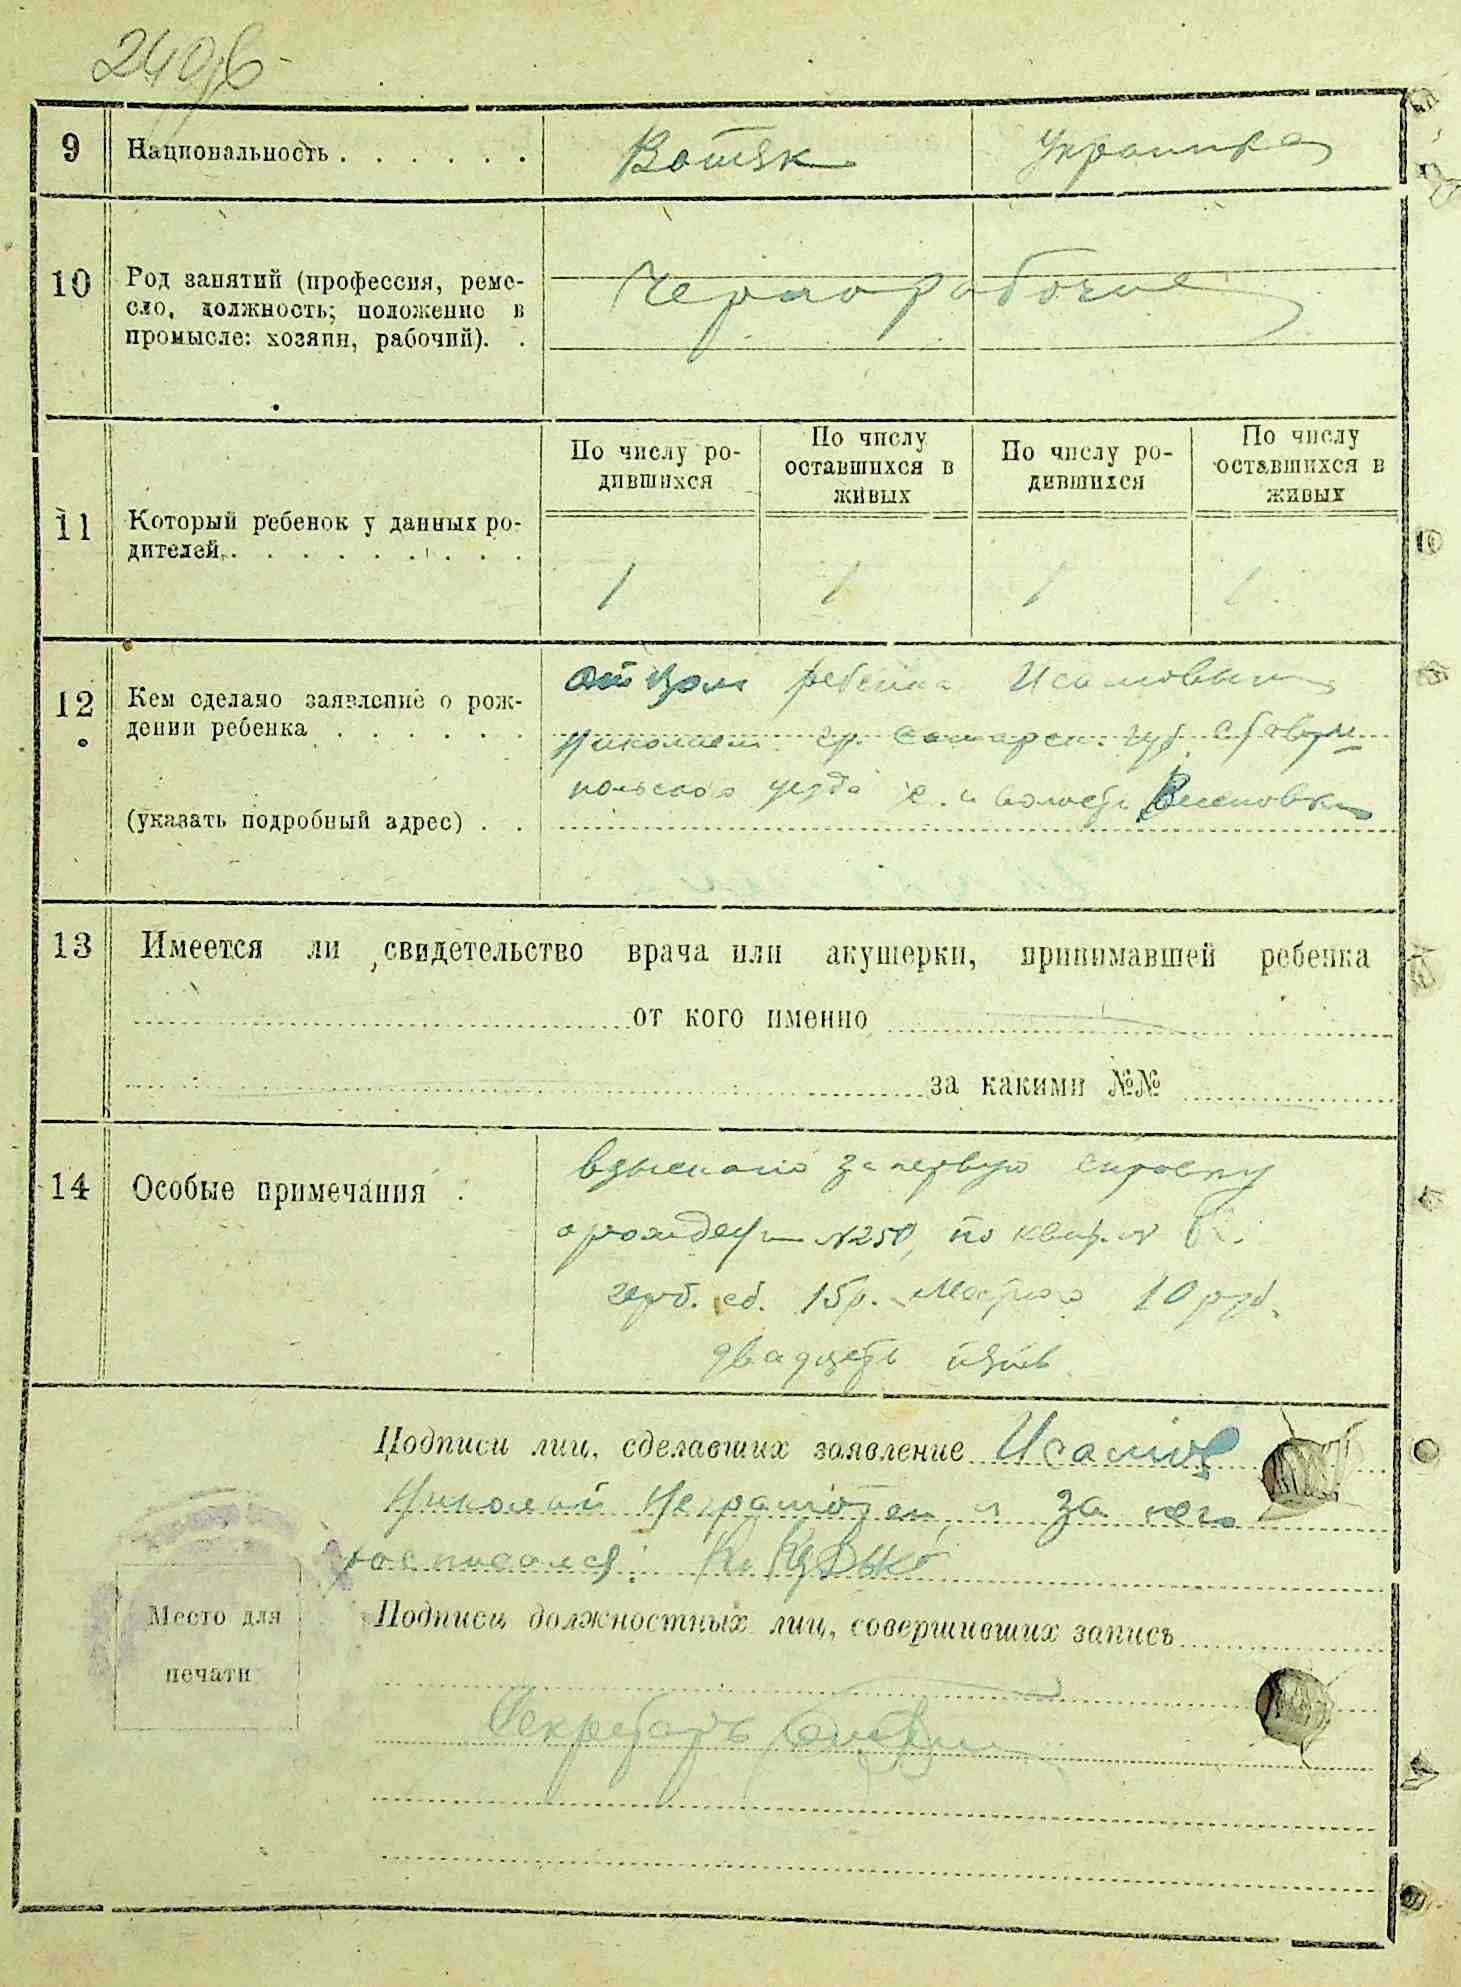 240
9 Национальность . . . . . . Вотяк Украинка
10 Род занятий (профессия, реме-
сло, должность; положение в
промысле: хозяин, рабочий). .
Чернорабочие
По числу ро-
дившихся
По числу
оставшихся в
живых
По числу ро-
дившихся
По числу
оставшихся в
живых
11 Который ребенок у данных ро-
дителей. . . . . . . . . .
1 1 1 1
12 Кем сделано заявление о рож-
дении ребенка . . . . . .
(указать подробный адрес) . .
отцом ребенка
Николаем гр. Самарск. губ. Ставро
польского уезда с. и волости
13 Имеется ли свидетельство врача или акушерки, принимавшей ребенка
от кого именно
за какими №№
14 Особые примечания .
взыскано за первую справку
о рождении №250, по квит. №
герб. сб. 15р. местного 10 руб.
двадцать пять
Подписи лиц, сделавших заявление
Николай неграмотен, а за него
расписался:
Место для
печати
Подписи должностных лиц, совершивших запись
Секретарь